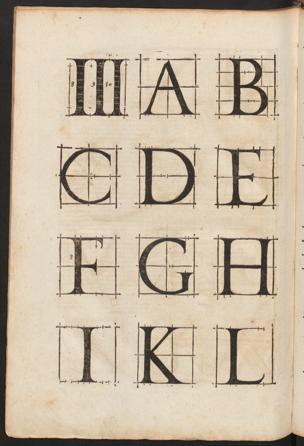 III A B
C D E
F G H
I K L